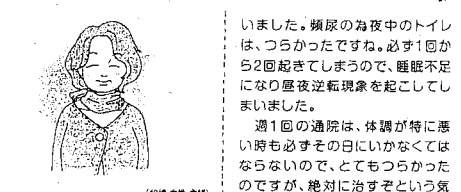 いました。頻尿の為夜中のトイレ
は、つらかったですね。必ず1回か
ら2回起きてしまうので、睡眠不足
になり昼夜逆転現象を起こしてし
まいました。
週1回の通院は、体調が特に悪
い時も必ずその日にいかなくては
ならないので、とてもつらかった
のですが、絶対に治すぞという気